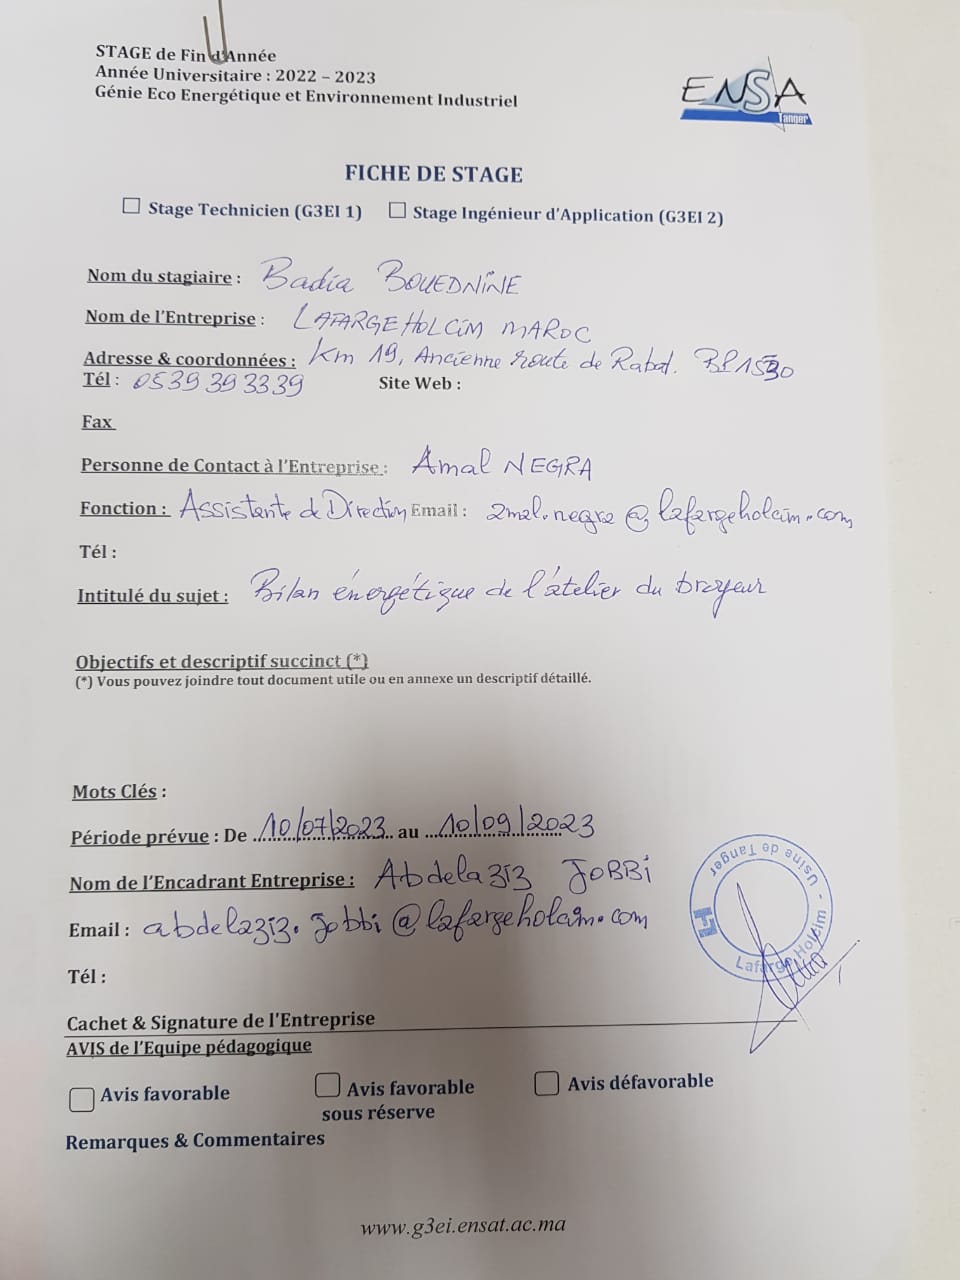 STAGE de Fin d'Année
Année Universitaire : 2022 – 2023
Génie Eco Energétique et Environnement Industriel
ENSA
Tanger
FICHE DE STAGE
☐ Stage Technicien (G3EI 1) ☐ Stage Ingénieur d'Application (G3EI 2)
Nom du stagiaire : Badia BOUEDNINE
Nom de l'Entreprise : LAFARGEHOLCIM MAROC
Adresse & coordonnées : Km 19, Ancienne route de Rabat. BP1530
Tél : 0539 39 33 39 Site Web :
Fax
Personne de Contact à l'Entreprise : Amal NEGRA
Fonction : Assistante de Direction Email : amal.negra@lafargeholcim.com
Tél :
Intitulé du sujet : Bilan énergétique de l'atelier du broyeur
Objectifs et descriptif succinct (*)
(*) Vous pouvez joindre tout document utile ou en annexe un descriptif détaillé.
Mots Clés :
Période prévue : De 10/07/2023 au 10/09/2023
Nom de l'Encadrant Entreprise : Abdelaziz JOBBI
Email : abdelaziz.jobbi@lafargeholcim.com
Tél :
Lafarge Holcim - Usine de Tanger
Cachet & Signature de l'Entreprise
AVIS de l'Equipe pédagogique
☐ Avis favorable ☐ Avis favorable sous réserve ☐ Avis défavorable
Remarques & Commentaires
www.g3ei.ensat.ac.ma